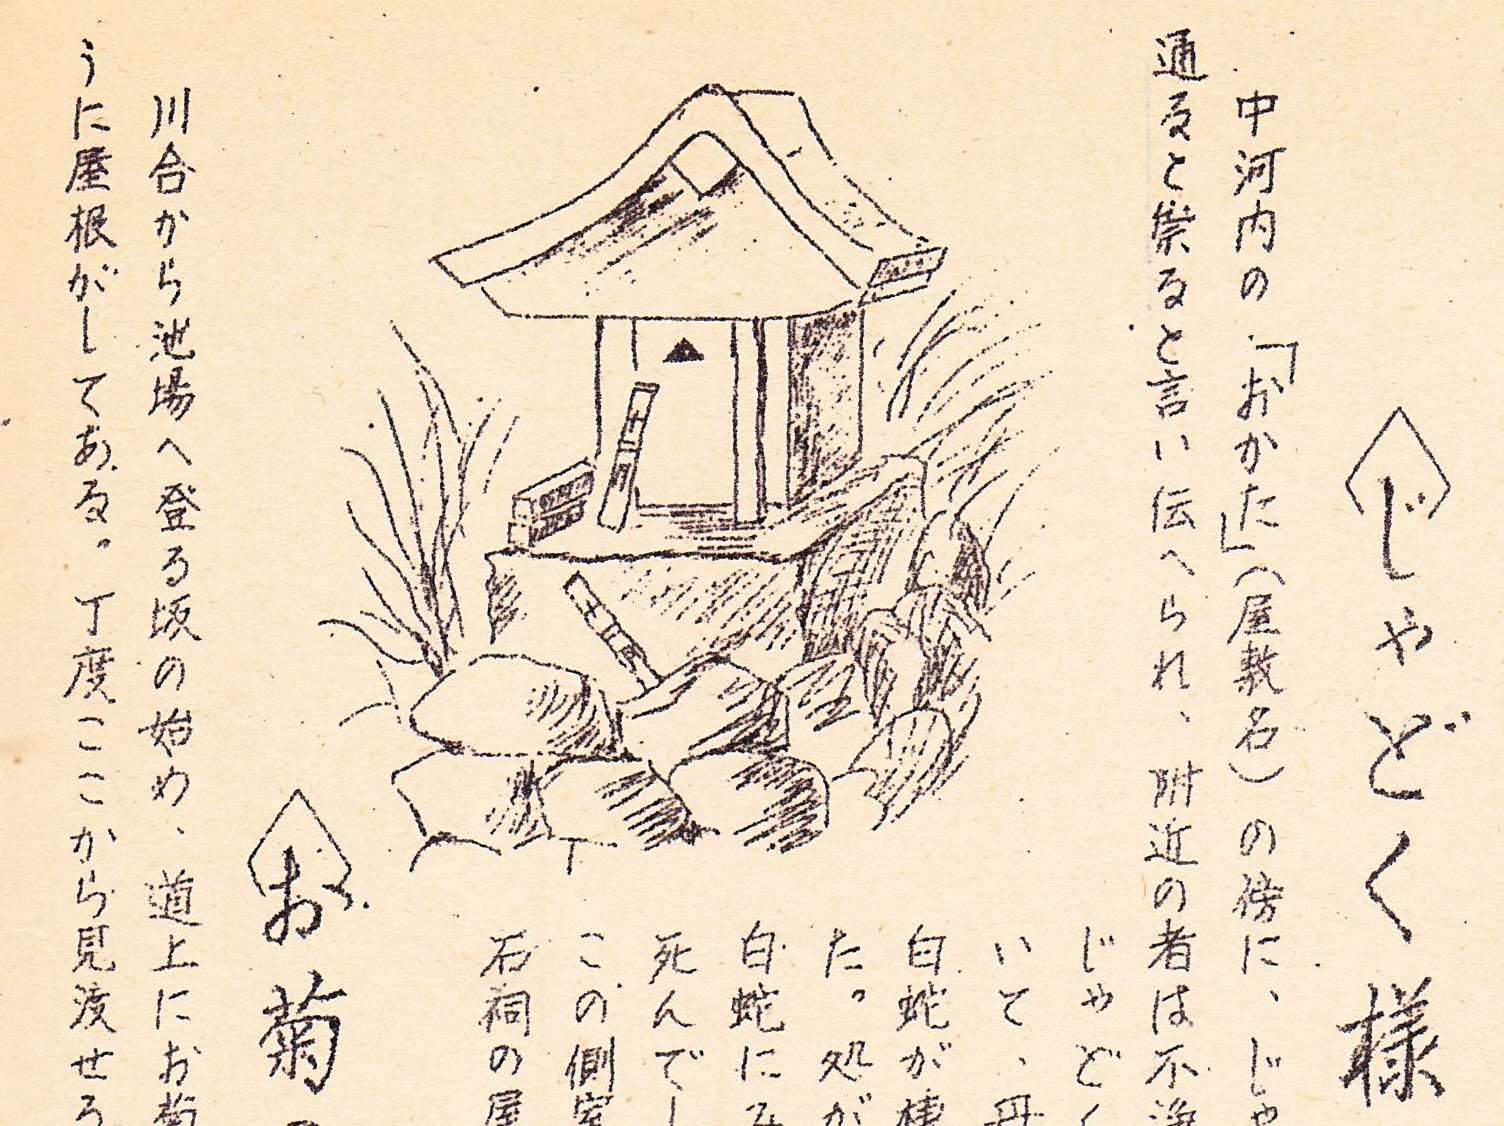 じゃどく様
中河内の「おかた」(屋敷名)の傍に、じゃ
通ると祟ると言い伝へられ、附近の者は不浄
じゃどく
いて、丹
白蛇が棲
た。処が
白蛇にみ
死んでし
この側室
石祠の屋
お菊
川合から池場へ登る坂の始め、道上にお菊
うに屋根がしてある。丁度ここから見渡せる